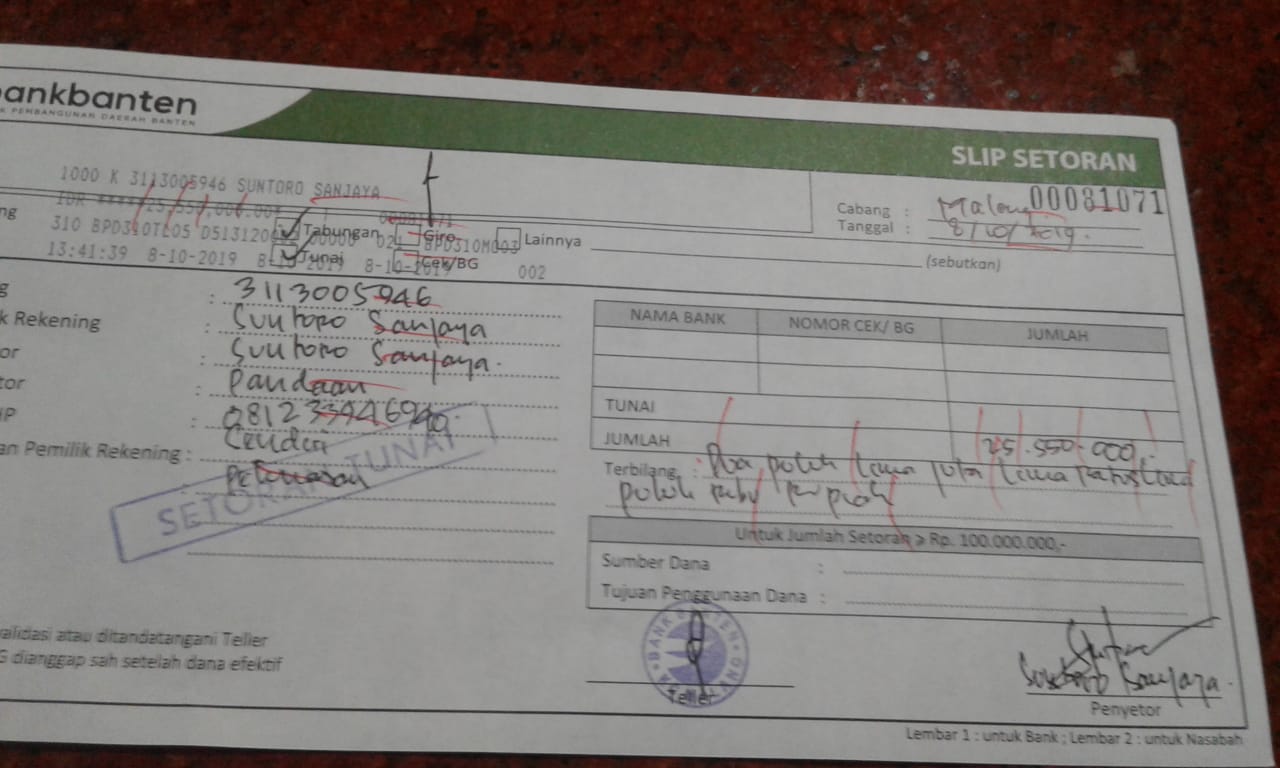 bankbanten
K PEMBANGUNAN DAERAH BANTEN
SLIP SETORAN
1000 K 3113005946 SUNTORO SANJAYA
00081071
Cabang : Malang
Tanggal : 8/10/2019.
IDR 25,550,000.00
Tabungan Giro Lainnya
310 BPD310TL05 BPD310M003
(sebutkan)
Tunai Cek/BG
13:41:39 8-10-2019 8-10-2019 8-10-2019 002
: 3113005946
k Rekening : Suntoro Sanjaya
or : Suntoro Sanjaya.
tor : Pandaan
: 081233946940.
an Pemilik Rekening : Cendiri
SETORAN TUNAI
NAMA BANK NOMOR CEK/ BG JUMLAH
TUNAI
JUMLAH 25.550.000,-
Terbilang : Dua puluh lima juta lima ratus lima
puluh ribu rupiah
Untuk Jumlah Setoran ≥ Rp. 100.000.000,-
Sumber Dana :
Tujuan Penggunaan Dana :
alidasi atau ditandatangani Teller
G dianggap sah setelah dana efektif
BANK BANTEN
Teller
Suntoro Sanjaya.
Penyetor
Lembar 1 : untuk Bank ; Lembar 2 : untuk Nasabah